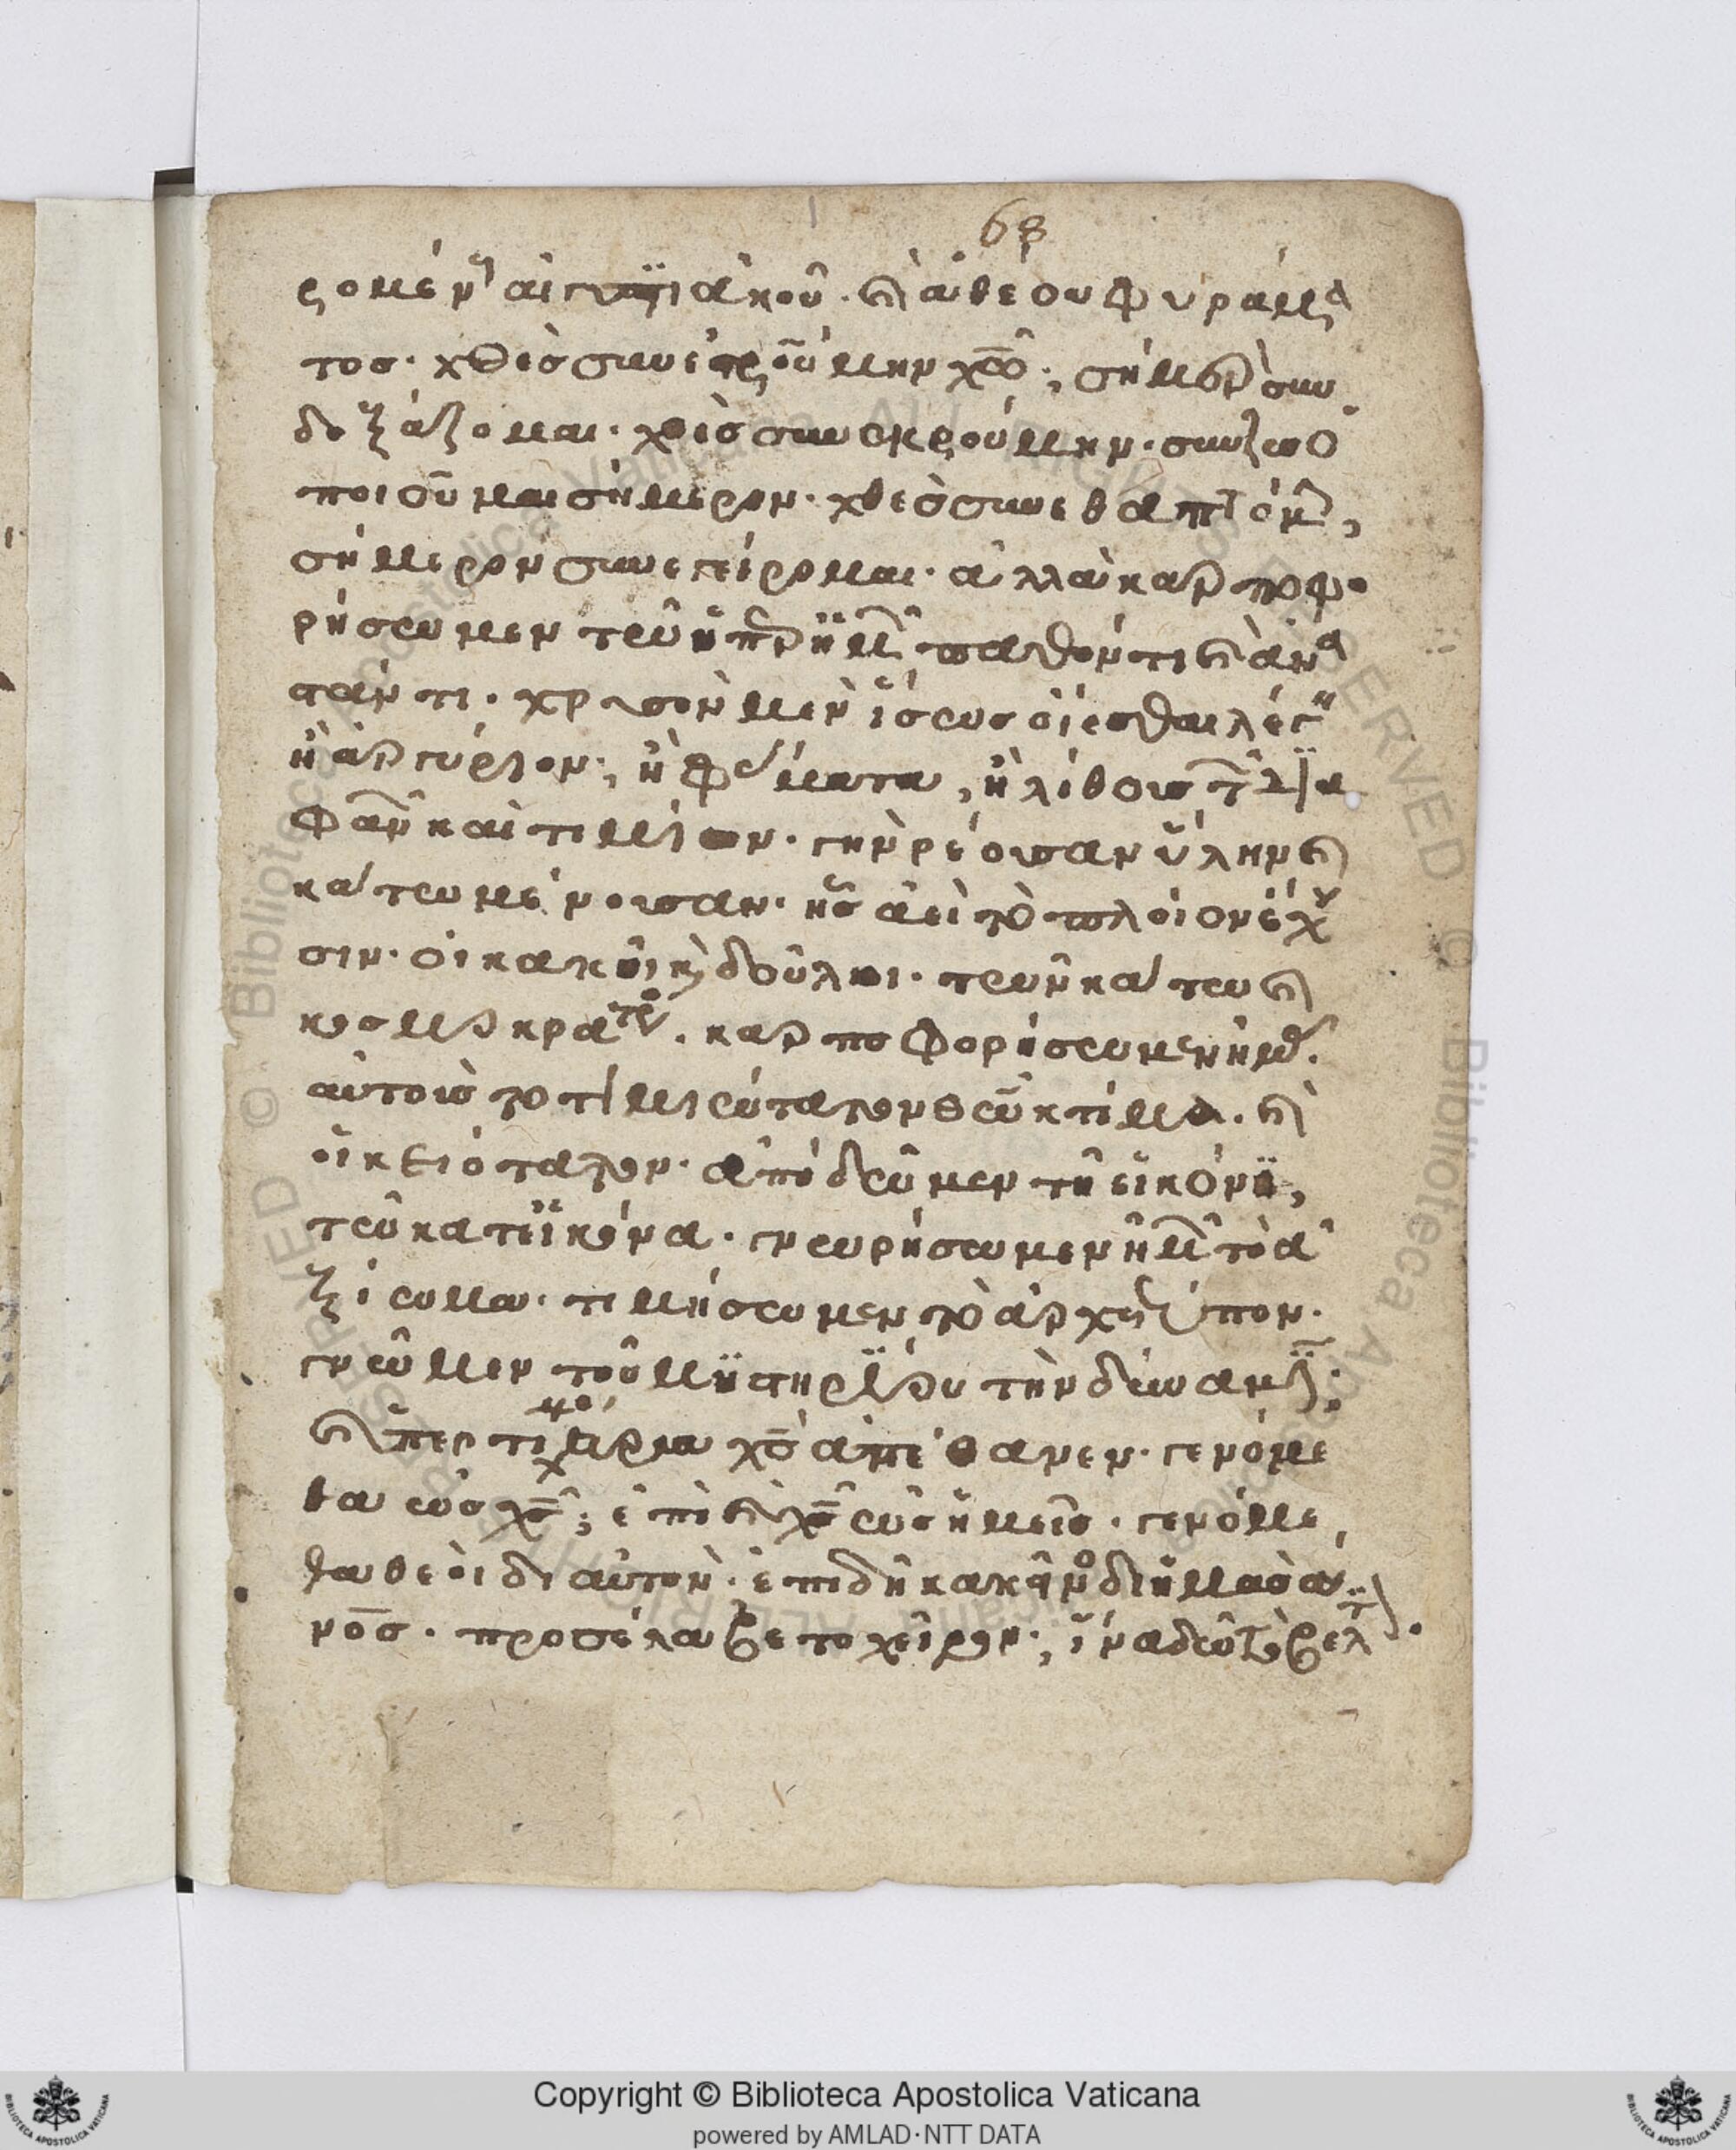 68
ρομένης αἰγυπτιακοῦ καὶ ἀθέου φυράμα
τος· χθὲς συνεσταυρούμην χῶ, σήμερον συν
δοξάζομαι· χθὲς συνενεκρούμην· συνζωο
ποιοῦμαι σήμερον· χθὲς συνεθαπτόμην,
σήμερον συνεγείρομαι· ἀλλὰ καρποφο
ρήσωμεν τῶ ὑπὲρ ἡμῶν παθόντι καὶ ἀνα
στάντι· χρυσὸν μὲν ἴσως οἴεσθαι λέγειν
ἢ ἄργυρον, ἢ ὑφάσματα, ἢ λίθους τῶν δια
φανῶν καὶ τιμίων· γηΐνην ῥέουσαν ὕλην καὶ
κάτω μένουσαν· ἧς ἀεὶ τὸ πλεῖον ἔχου
σιν· οἱ κακοὶ καὶ δοῦλοι· τῶν κάτω καὶ
κοσμοκράτορος· καρποφορήσωμεν ἡμᾶς
αὐτοὺς τὸ τιμιώτατον θεῶ κτῆμα· καὶ
οἰκειότατον· ἀποδῶμεν τῆ εἰκόνι,
τῶ κατ' εἰκόνα· γνωρίσωμεν ἡμῶν τὸ ἀ
ξίωμα· τιμήσωμεν τὸ ἀρχέτυπον·
γνῶμεν τοῦ μυστηρίου τὴν δύναμιν·
καὶ ὑπὲρ τίνος χς ἀπέθανεν· γενώμε
θα ὡς χς, ἐπεὶ καὶ χς ὡς ἡμεῖς· γενώμε
θα θεοὶ δι αὐτὸν· ἐπειδὴ κακεῖνος δι ἡμᾶς ἄν
νος· προσέλαβε τὸ χεῖρον, ἵνα δῶ τὸ βέλτ
Copyright © Biblioteca Apostolica Vaticana
powered by AMLAD·NTT DATA